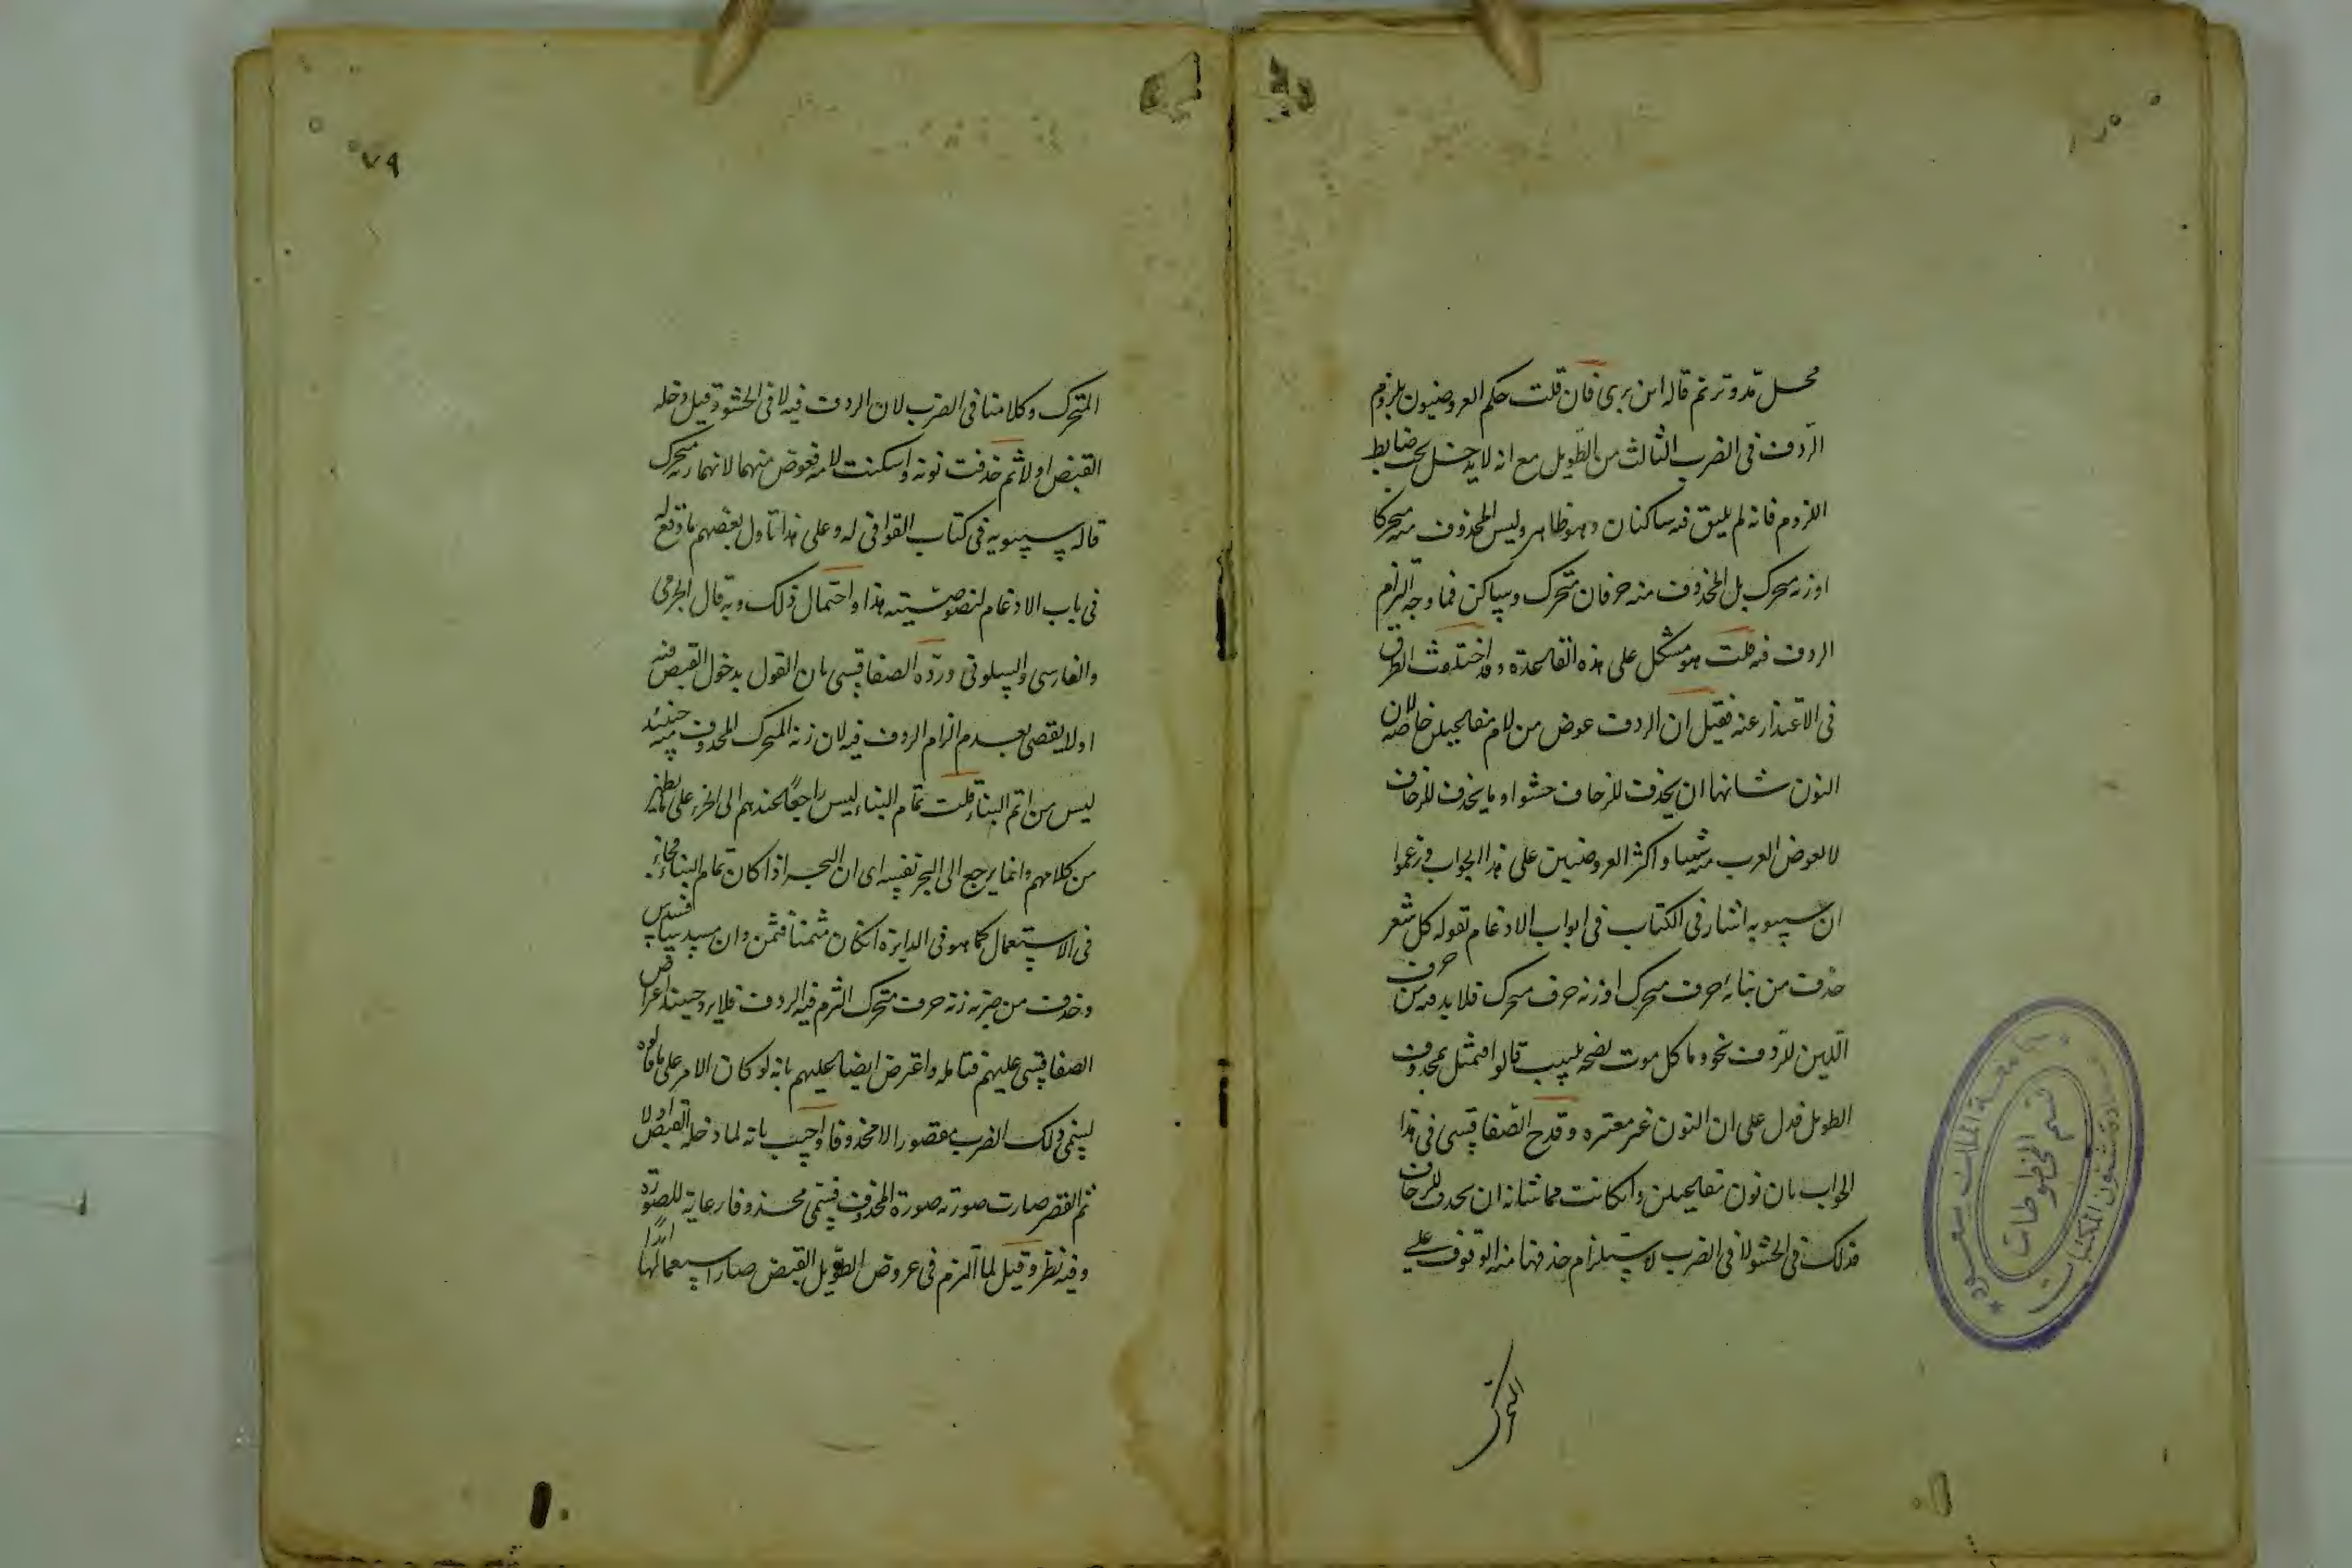 محل مد وترنم قاله ابن برى فان قلت حكم العروضيون بلزوم
الردف فى الضرب الثالث من الطويل مع انه لا يدخل تحت ضابط
اللزوم فانه لم يلتق فيه ساكنان وهو ظاهر وليس المحذوف منه متحركا
او زنة متحرك بل المحذوف منه حرفان متحرك وساكن فما وجه التزام
الردف فيه قلت هو مشكل على هذه القاعدة وقد اختلفت الطرق
فى الاعتذار عنه فقيل ان الردف عوض من لام مفاعيلن خاصة لان
النون شانها ان يحذف للزحاف حشوا وما يحذف للزحاف
لا تعوض العرب منه شيا واكثر العروضيين على هذا الجواب وزعموا
ان سيبويه اشار فى الكتاب فى ابواب الادغام بقوله كل شعر
حذفت من بنائه حرف متحرك او زنة حرف متحرك فلا بد فيه من حرف
اللين للردف نحو وما كل موت نصحه بلبيب قالوا فمثل بمحذوف
الطويل فدل على ان النون غير معتبره وقدح الصفاقسى فى هذا
الجواب بان نون مفاعيلن وان كانت مما شانه ان يحذف للزحاف
فذلك فى الحشو لا فى الضرب لاستلزام حذفها منه الوقوف على
المتحرك
٧٩
المتحرك وكلامنا فى الضرب لان الردف فيه لا فى الحشو وقيل دخله
القبض اولا ثم حذفت نونه واسكنت لامه فعوض منهما لانهما زنة متحرك
قاله سيبويه فى كتاب القوافى له وعلى هذا تاول بعضهم ما وقع له
فى باب الادغام لنصوصيته هذا واحتمال ذلك وبه قال الجرمى
والفارسى والسلوبى ورده الصفاقسى بان القول بدخول القبض فيه
اولا يقضى بعدم الزام الردف فيه لان زنة المتحرك المحذوف منه حينئذ
ليس من اتم البناء قلت تمام البناء ليس راجعا عندهم الى الجزء على ما يظهر
من كلامهم وانما يرجع الى البحر نفسه اى ان البحر اذا كان تمام البناء فجاء
فى الاستعمال كما هو فى الدايرة ان كان مثمنا فثمن وان مسدسا فسدس
وحذف من ضربه زنة حرف متحرك التزم فيه الردف فلا يرد حينئذ اعتراض
الصفاقسى عليهم فتامله واعترض ايضا عليهم بانه لو كان الامر على ما قالوه
لسمى ذلك الضرب مقصورا لا محذوفا واجيب بانه لما دخله القبض اولا
ثم القصر صارت صورته صورة المحذوف فسمى محذوفا رعاية للصورة
وفيه نظر وقيل لما التزم فى عروض الطويل القبض صار استعمالها ابدا
جامعة الملك سعود
قسم المخطوطات
عمادة شئون المكتبات